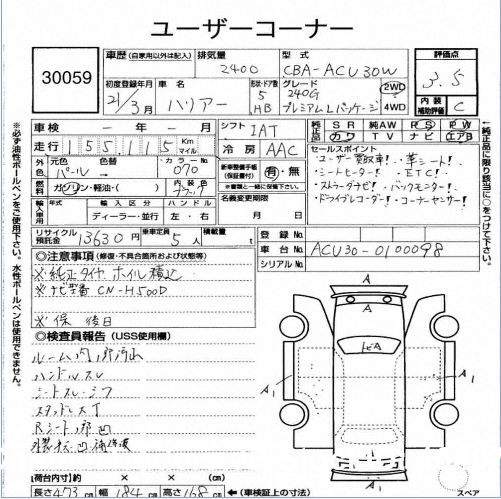 ユーザーコーナー
30059
車歴 (自家用以外は記入)
排気量 2400
型式 CBA-ACU30W
評価点 3.5
内装補助評価 C
初度登録年月 21/3月
車名 ハリアー
形状・ドア数 5 HB
グレード 240G プレミアムLパッケージ
2WD 4WD
車検 年 月 日
走行 155115 Km マイル
シフト IAT
冷房 AAC
純正品 SR 純AW PS PW
カワ TV ナビ エアB
外色 元色 パール 色替
カラーNo 070
燃料 ガソリン・軽油・( )
内装色 ブラック
新車整備手帳(保証書付) 有・無
※書類と一緒に保管下さい。
セールスポイント
・ユーザー買取車!・革シート!
・シートヒーター!・ETC!
・ストラーダナビ!・バックモニター!
・ドライブレコーダー!・コーナーセンサー!
輸入車用 年 輸入区分 ハンドル
ディーラー・並行 左・右
名義変更期限 月 日
リサイクル預託金 13630円
乗車定員 5人
積載量 t
登録No
車台No ACU30-0100098
シリアルNo
◎注意事項 (修復・不具合箇所および状態等)
※純正タイヤ ホイル積込
※ナビ型番 CN-H500D
※保 後日
◎検査員報告 (USS使用欄)
ルーム内
ハンドルスレ
シートスレ・シワ
スタッドレスT
Rシート
A
A
ヒA
A1
A1
A
スペア
(荷台内寸) × × (cm)
長さ 473cm 幅 184cm 高さ 168cm ←(車検証上の寸法)
※必ず油性ボールペンをご使用下さい。水性ボールペンは使用できません。
(純正品に限り該当に○をつけて下さい)